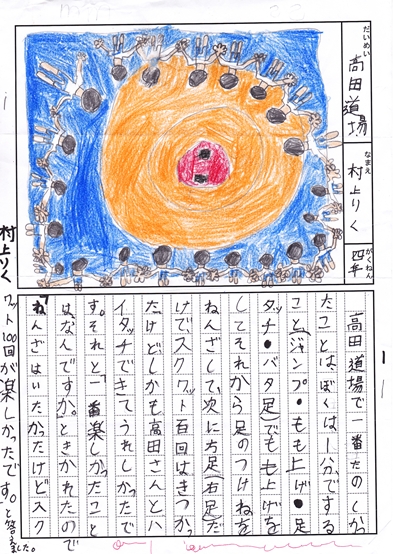 だいめい
高田道場
なまえ
村上りく
がくねん
四年
高田道場で一番たのしか
たことは、ぼくは一分でする
こと(ジャンプ・もも上げ・足
タッチ・バタ足)でもも上げを
してそれから足のつけねを
ねんざして、次に方足(右足)だ
けで、スクワット百回はきつか
たけど、しかも高田さんとハ
イタッチできてうれしかったで
す。それと「一番楽しかったこと
は、なんですか。」ときかれたので
「ねんざはいたかったけどスク
ワット100回が楽しかったです。」と答えました。
村上りく